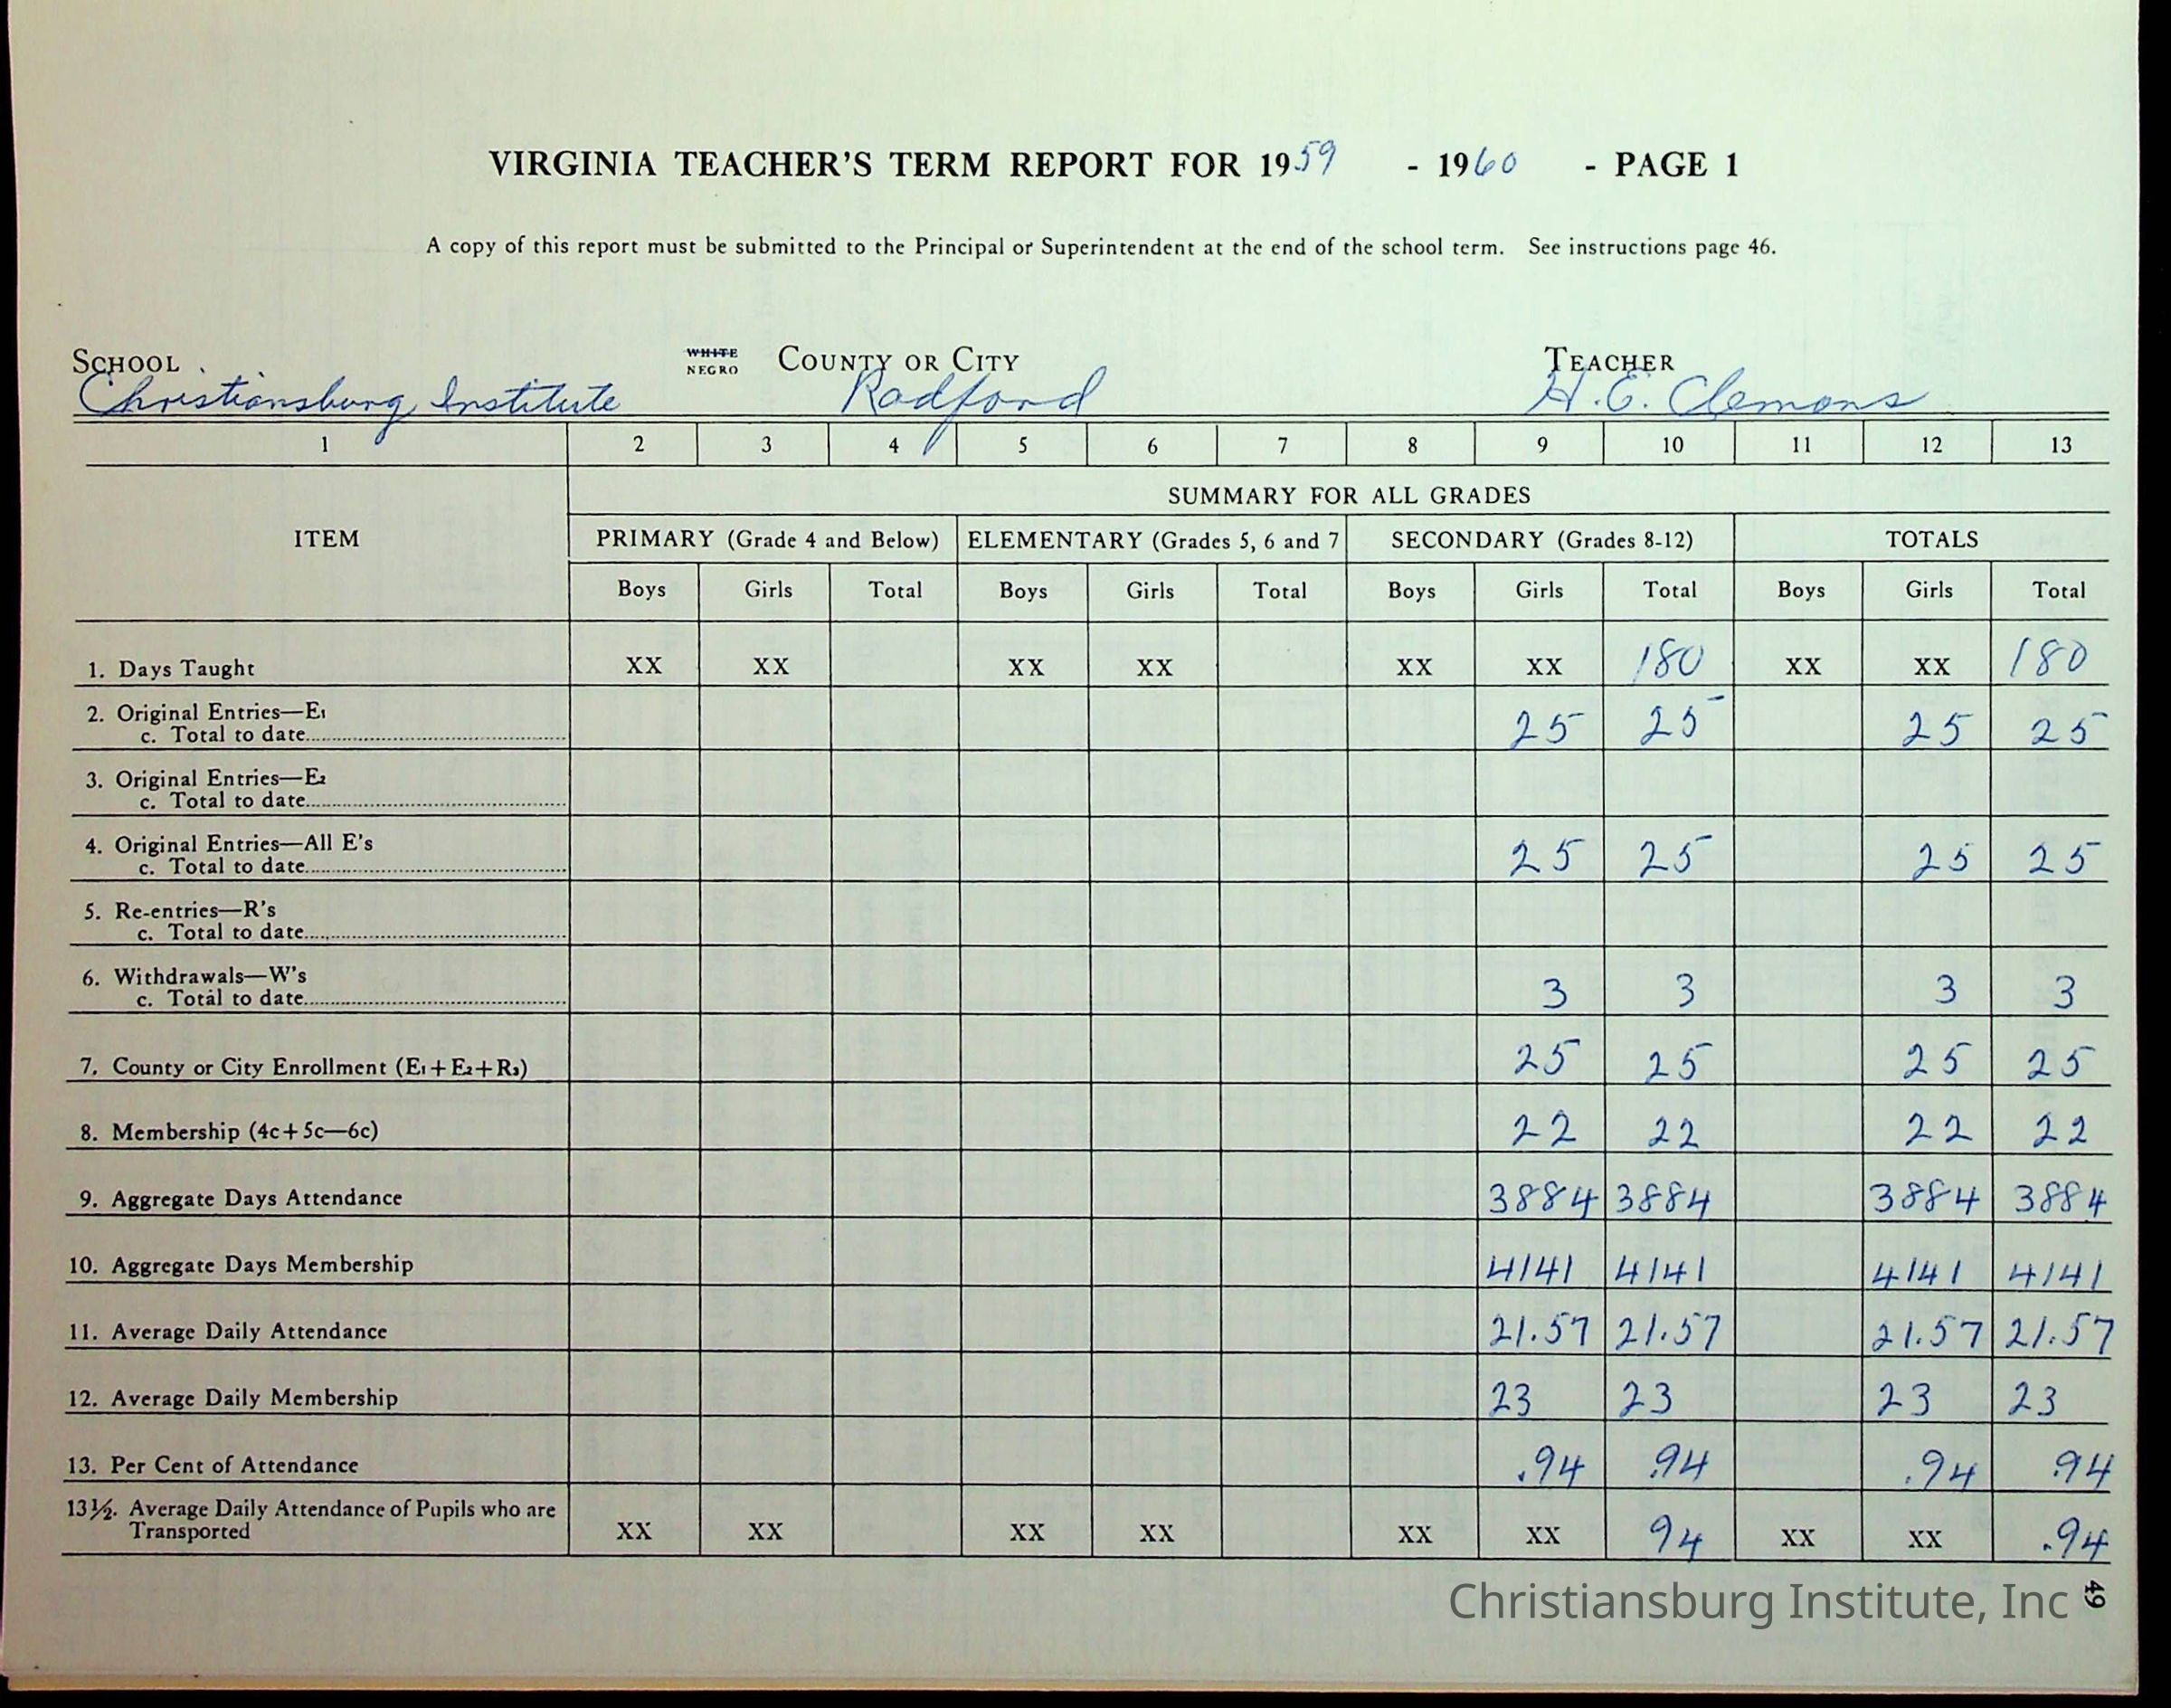 VIRGINIA TEACHER'S TERM REPORT FOR 1959 - 1960 - PAGE 1
A copy of this report must be submitted to the Principal or Superintendent at the end of the school term. See instructions page 46.
SCHOOL WHITE NEGRO COUNTY OR CITY TEACHER
Christiansburg Institute Radford H. E. Clemons
1 2 3 4 5 6 7 8 9 10 11 12 13
SUMMARY FOR ALL GRADES
ITEM PRIMARY (Grade 4 and Below) ELEMENTARY (Grades 5, 6 and 7 SECONDARY (Grades 8-12) TOTALS
Boys Girls Total Boys Girls Total Boys Girls Total Boys Girls Total
1. Days Taught XX XX XX XX XX XX 180 XX XX 180
2. Original Entries—E1
c. Total to date 25 25 25 25
3. Original Entries—E2
c. Total to date
4. Original Entries—All E's
c. Total to date 25 25 25 25
5. Re-entries—R's
c. Total to date
6. Withdrawals—W's
c. Total to date 3 3 3 3
7. County or City Enrollment (E1+E2+R3) 25 25 25 25
8. Membership (4c+5c—6c) 22 22 22 22
9. Aggregate Days Attendance 3884 3884 3884 3884
10. Aggregate Days Membership 4141 4141 4141 4141
11. Average Daily Attendance 21.57 21.57 21.57 21.57
12. Average Daily Membership 23 23 23 23
13. Per Cent of Attendance .94 .94 .94 .94
13½. Average Daily Attendance of Pupils who are
Transported XX XX XX XX XX XX 94 XX XX .94
Christiansburg Institute, Inc
49